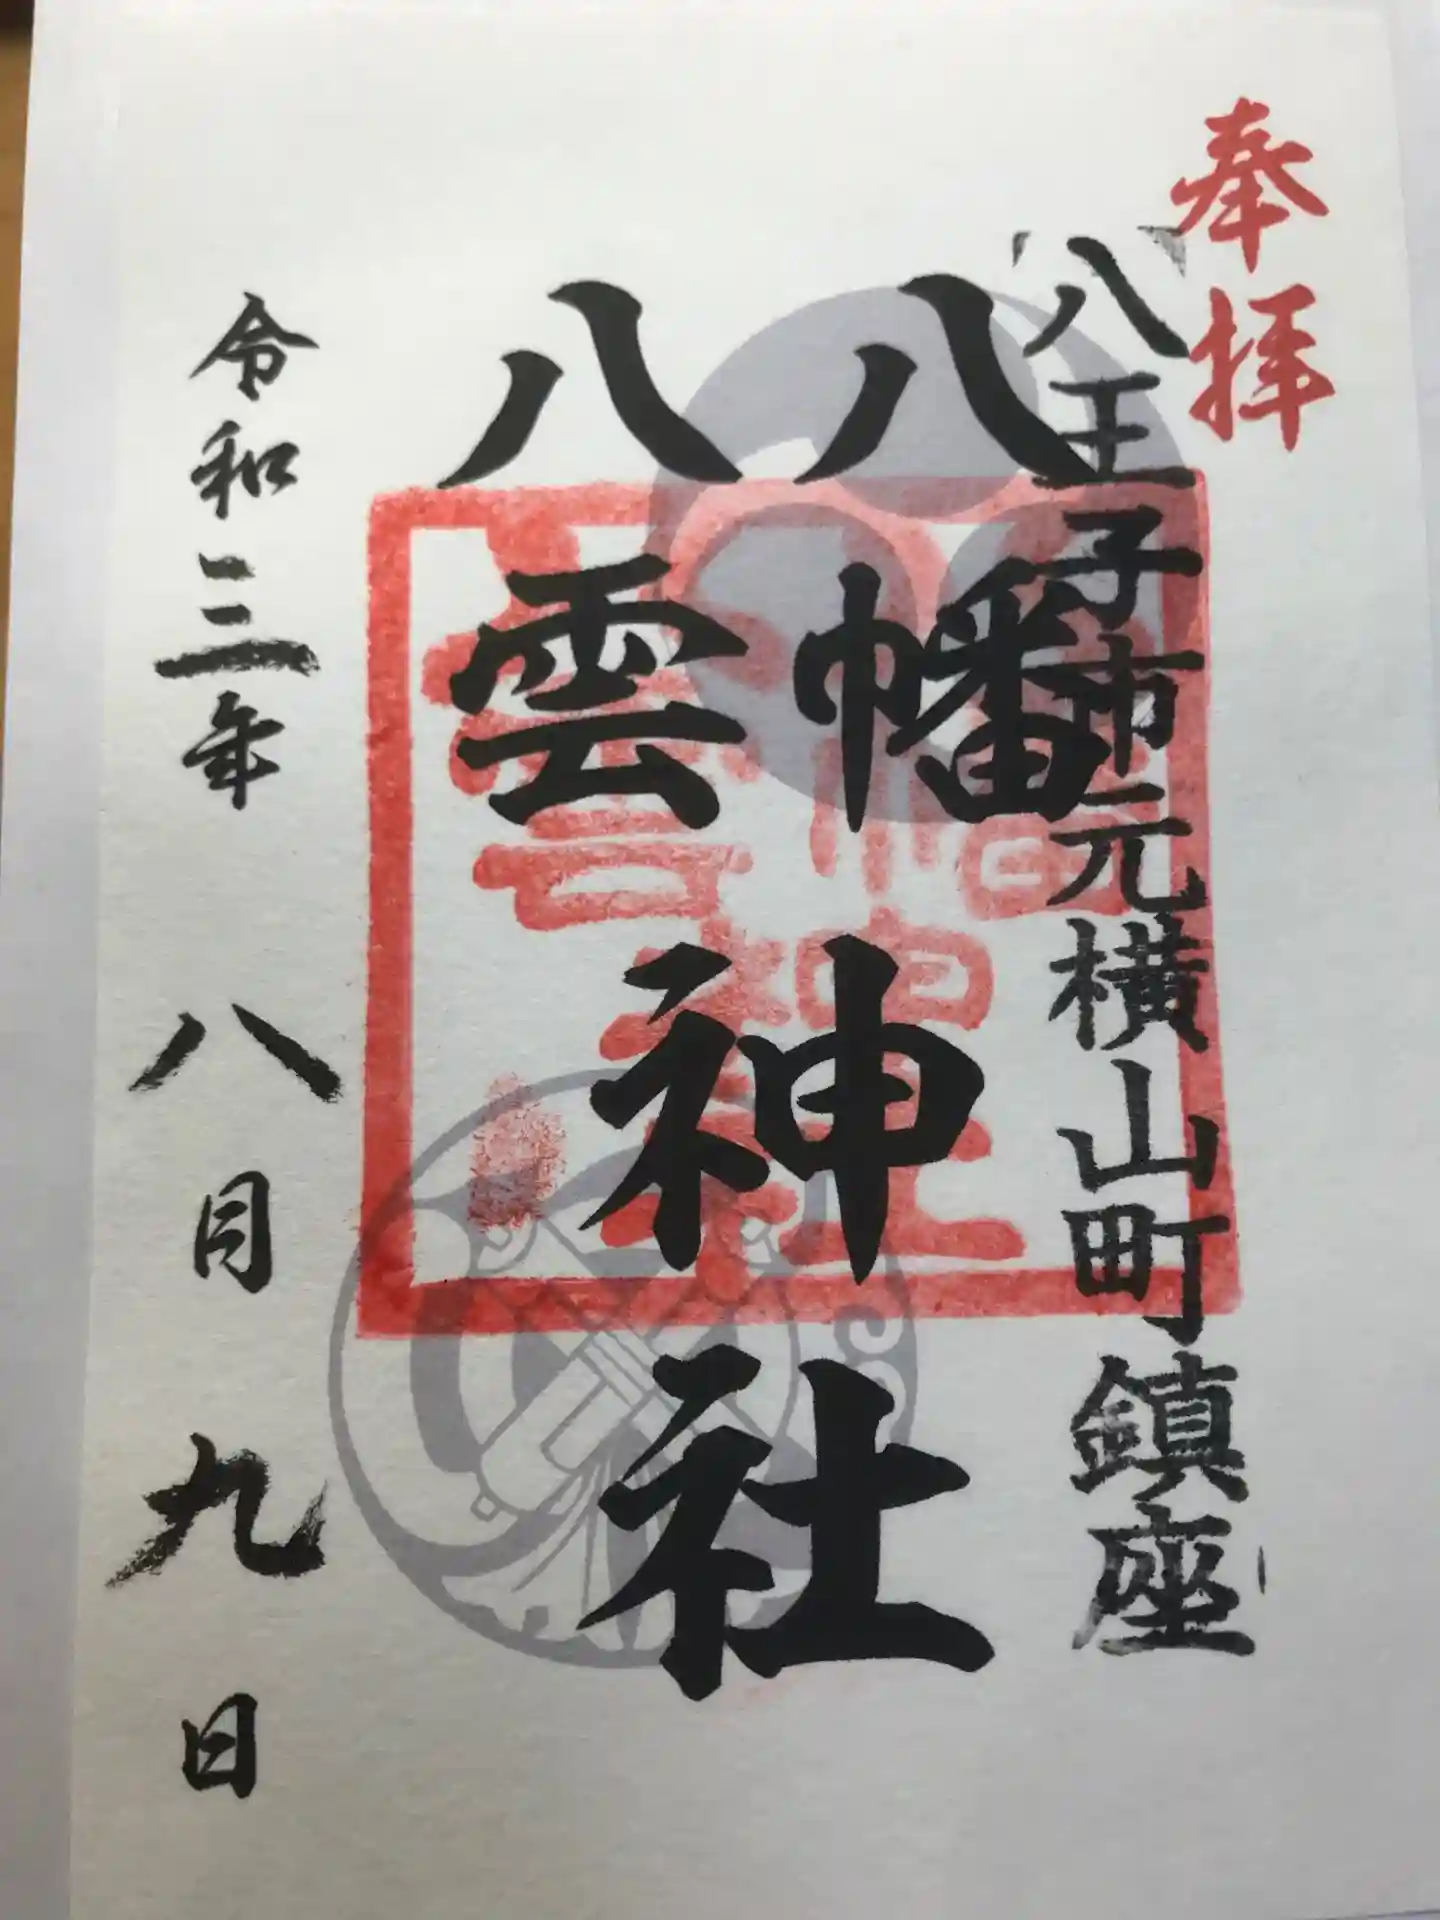 奉拝
八王子市元横山町鎮座
八幡
八雲
神社
令和三年 八月九日